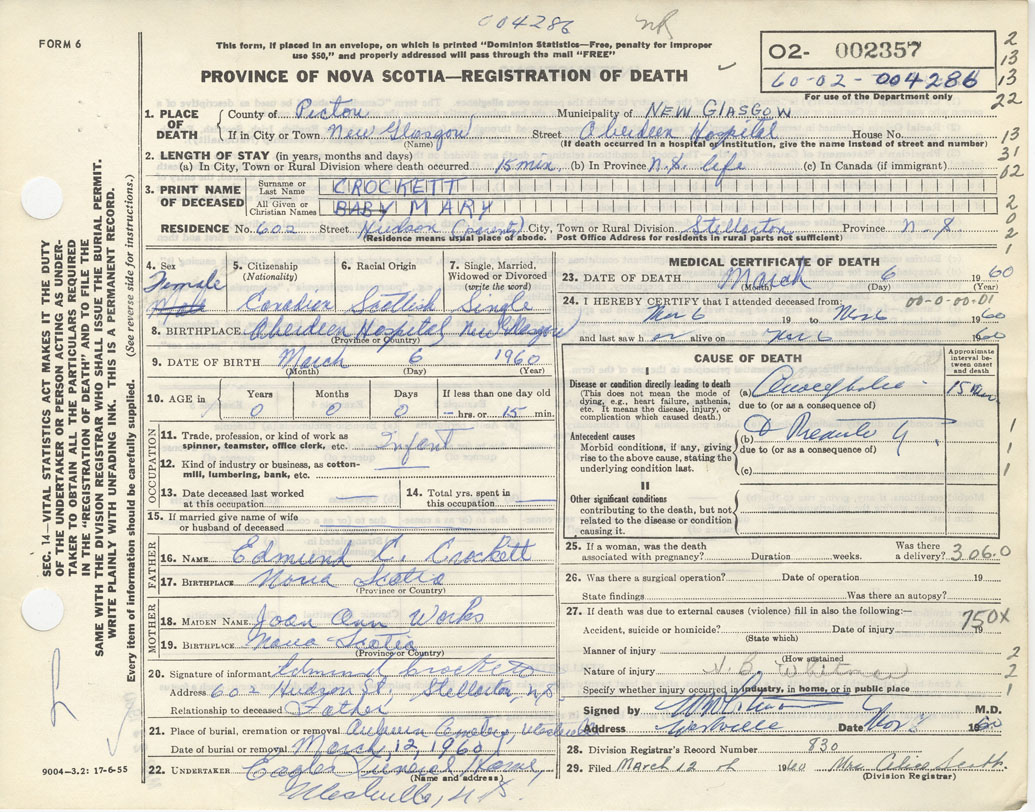 004286 NR
FORM 6
This form, if placed in an envelope, on which is printed "Dominion Statistics—Free, penalty for improper
use $50," and properly addressed will pass through the mail "FREE"
PROVINCE OF NOVA SCOTIA—REGISTRATION OF DEATH
O2- 002357
60-02-004286
For use of the Department only
2
13
13
22
13
31
02
2
0
2
1
1. PLACE OF DEATH County of Pictou Municipality of NEW GLASGOW
If in City or Town New Glasgow Street Aberdeen Hospital House No.
(Name) (If death occurred in a hospital or institution, give the name instead of street and number)
2. LENGTH OF STAY (in years, months and days)
(a) In City, Town or Rural Division where death occurred 15 min. (b) In Province N.S. life (c) In Canada (if immigrant)
3. PRINT NAME OF DECEASED Surname or Last Name CROCKETT
All Given or Christian Names BABY MARY
RESIDENCE No. 602 Street Hudson (parents) City, Town or Rural Division Stellarton Province N.S.
(Residence means usual place of abode. Post Office Address for residents in rural parts not sufficient)
4. Sex Female Male
5. Citizenship (Nationality) Canadian
6. Racial Origin Scottish
7. Single, Married, Widowed or Divorced (write the word) Single
8. BIRTHPLACE Aberdeen Hospital, New Glasgow
(Province or Country)
9. DATE OF BIRTH March 6 1960
(Month) (Day) (Year)
10. AGE in Years Months Days If less than one day old
0 0 0 — hrs. or 15 min.
OCCUPATION
11. Trade, profession, or kind of work as spinner, teamster, office clerk, etc. Infant
12. Kind of industry or business, as cotton-mill, lumbering, bank, etc.
13. Date deceased last worked at this occupation
14. Total yrs. spent in this occupation
15. If married give name of wife or husband of deceased
FATHER
16. NAME Edmund C. Crockett
17. BIRTHPLACE Nova Scotia
(Province or Country)
MOTHER
18. MAIDEN NAME Joan Ann Works
19. BIRTHPLACE Nova Scotia
(Province or Country)
20. Signature of informant Edmund Crockett
Address 602 Hudson St. Stellarton, N.S.
Relationship to deceased Father
21. Place of burial, cremation or removal Auburn
Date of burial or removal March, 12, 1960
22. UNDERTAKER Eagles Funeral Home,
(Name and address)
Westville, N.S.
MEDICAL CERTIFICATE OF DEATH
23. DATE OF DEATH March 6 1960
(Month) (Day) (Year)
24. I HEREBY CERTIFY that I attended deceased from: 00-0-00-01
Mar 6 19 to Mar 6 1960
and last saw h er alive on Mar 6 1960
CAUSE OF DEATH
Approximate interval between onset and death
I
Disease or condition directly leading to death
(This does not mean the mode of dying, e.g., heart failure, asthenia, etc. It means the disease, injury, or complication which caused death.)
(a) 15 Min
due to (or as a consequence of)
Antecedent causes
Morbid conditions, if any, giving rise to the above cause, stating the underlying condition last.
(b)
due to (or as a consequence of)
(c)
1
1
1
II
Other significant conditions
contributing to the death, but not related to the disease or condition causing it.
25. If a woman, was the death associated with pregnancy? Duration weeks. Was there a delivery? 306.0
26. Was there a surgical operation? Date of operation 19
State findings Was there an autopsy?
27. If death was due to external causes (violence) fill in also the following:—
Accident, suicide or homicide? Date of injury 19 750X
(State which)
Manner of injury
(How sustained)
Nature of injury
Specify whether injury occurred in industry, in home, or in public place
2
2
1
Signed by M.D.
Address Westville Date Mar 1960
28. Division Registrar's Record Number 830
29. Filed March 12th 1960 Mrs. Alice Scott
(Division Registrar)
SEC. 14—VITAL STATISTICS ACT MAKES IT THE DUTY
OF THE UNDERTAKER OR PERSON ACTING AS UNDER-
TAKER TO OBTAIN ALL THE PARTICULARS REQUIRED
IN THE "REGISTRATION OF DEATH" AND TO FILE THE
SAME WITH THE DIVISION REGISTRAR WHO SHALL ISSUE THE BURIAL PERMIT.
WRITE PLAINLY WITH UNFADING INK. THIS IS A PERMANENT RECORD.
Every item of information should be carefully supplied. (See reverse side for instructions.)
9004-3.2: 17-6-55